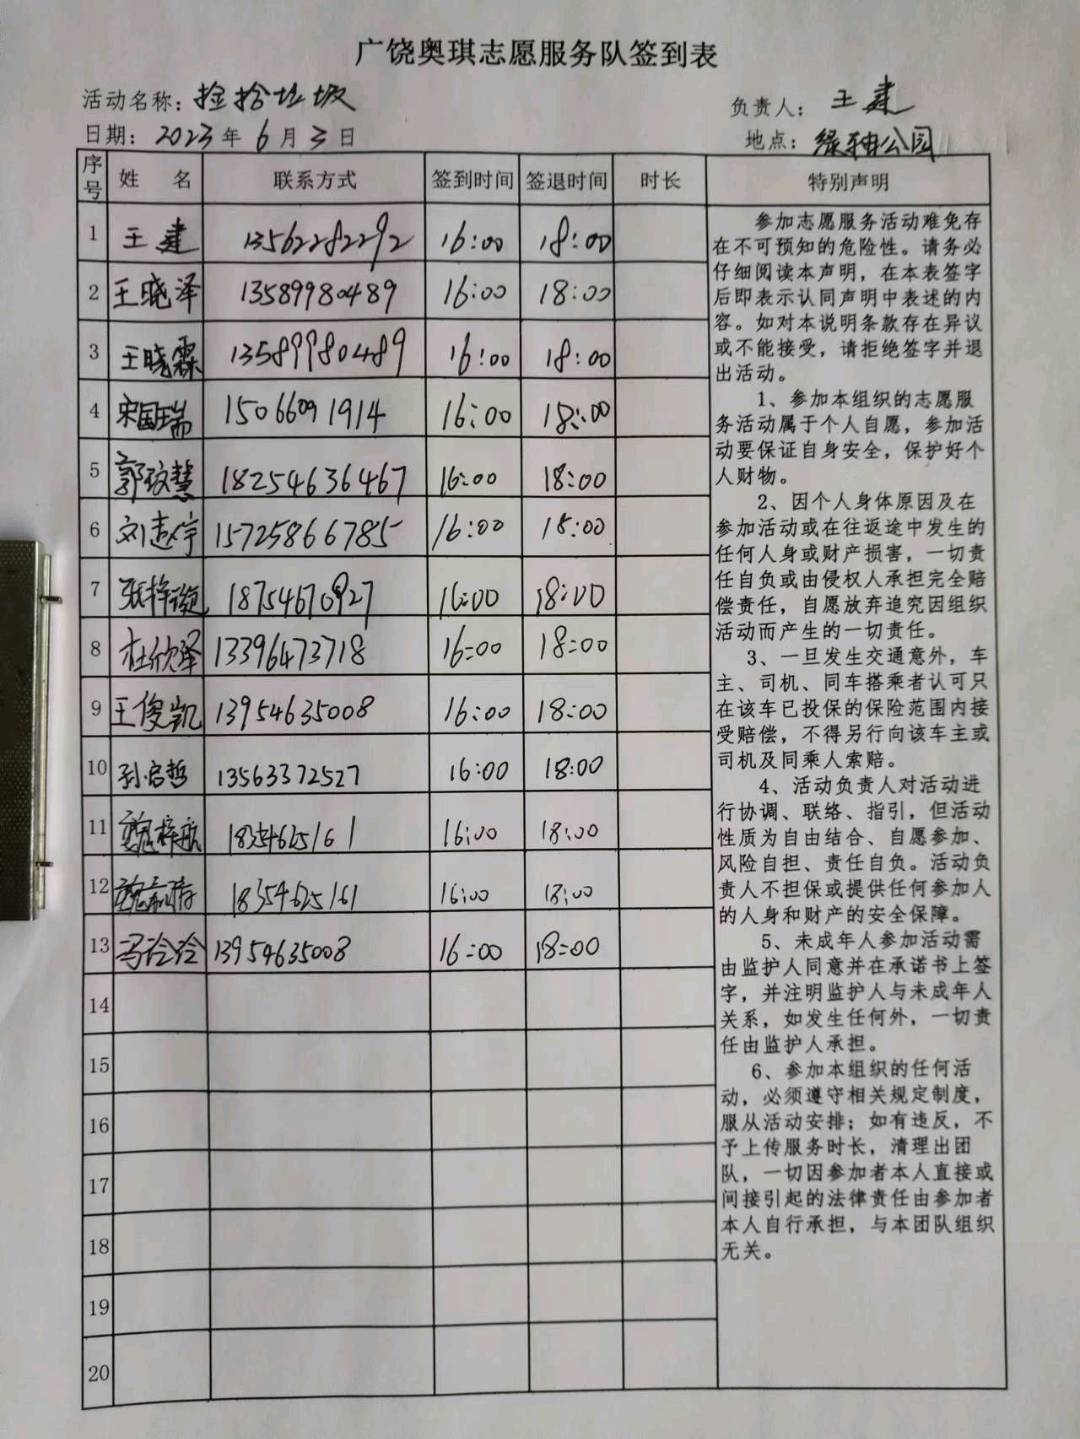 广饶奥琪志愿服务队签到表
活动名称：捡拾垃圾 负责人：王建
日期：2023年6月3日 地点：绿轴公园
序号 姓 名 联系方式 签到时间 签退时间 时长 特别声明
1 王建 13562282292 16:00 18:00
2 王晓泽 13589980489 16:00 18:00
3 王晓霖 13589980489 16:00 18:00
4 宋国瑞 15066091914 16:00 18:00
5 郭玟慧 18254636467 16:00 18:00
6 刘 宇 15725866785 16:00 18:00
7 张梓 18754670927 16:00 18:00
8 杜欣泽 13396473718 16:00 18:00
9 王俊凯 13954635008 16:00 18:00
10 孙启哲 13563372527 16:00 18:00
11 魏梓航 18354625161 16:00 18:00
12 魏 18354625161 16:00 18:00
13 冯玲玲 13954635008 16:00 18:00
14
15
16
17
18
19
20
参加志愿服务活动难免存
在不可预知的危险性。请务必
仔细阅读本声明，在本表签字
后即表示认同声明中表述的内
容。如对本说明条款存在异议
或不能接受，请拒绝签字并退
出活动。
1、参加本组织的志愿服
务活动属于个人自愿，参加活
动要保证自身安全，保护好个
人财物。
2、因个人身体原因及在
参加活动或在往返途中发生的
任何人身或财产损害，一切责
任自负或由侵权人承担完全赔
偿责任，自愿放弃追究因组织
活动而产生的一切责任。
3、一旦发生交通意外，车
主、司机、同车搭乘者认可只
在该车已投保的保险范围内接
受赔偿，不得另行向该车主或
司机及同乘人索赔。
4、活动负责人对活动进
行协调、联络、指引，但活动
性质为自由结合、自愿参加、
风险自担、责任自负。活动负
责人不担保或提供任何参加人
的人身和财产的安全保障。
5、未成年人参加活动需
由监护人同意并在承诺书上签
字，并注明监护人与未成年人
关系，如发生任何外，一切责
任由监护人承担。
6、参加本组织的任何活
动，必须遵守相关规定制度，
服从活动安排；如有违反，不
予上传服务时长，清理出团
队，一切因参加者本人直接或
间接引起的法律责任由参加者
本人自行承担，与本团队组织
无关。